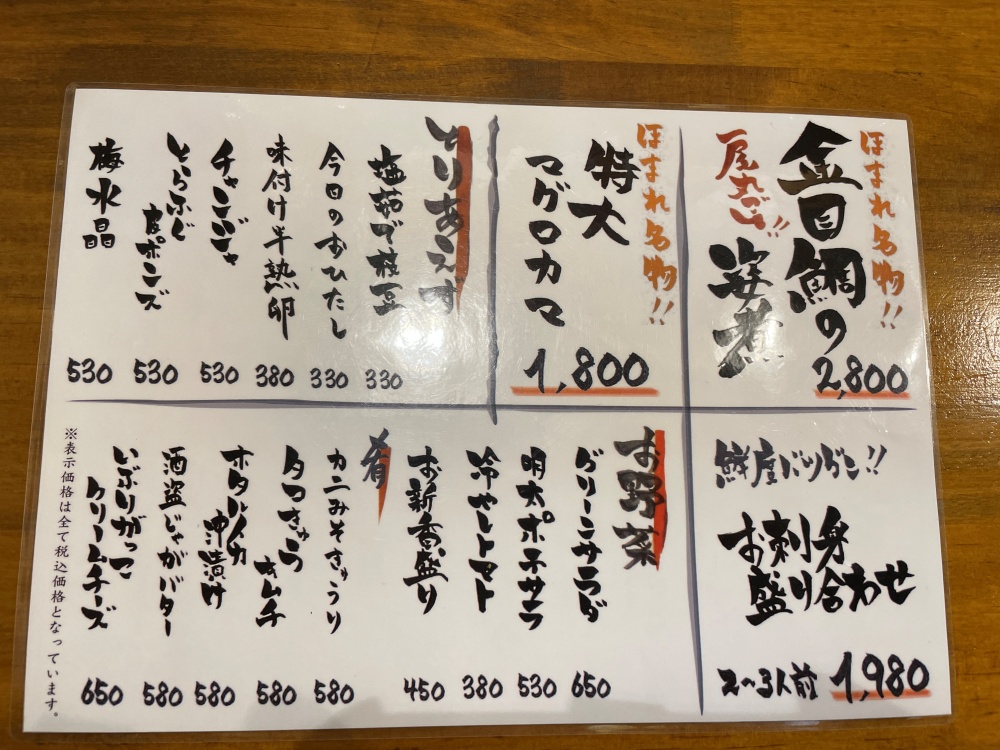 ほまれ名物!!
金目鯛の
姿煮
一尾丸ごと!!
2,800
ほまれ名物!!
特大
マグロカマ
1,800
とりあえず
塩茹で枝豆
330
今日のおひたし
330
味付け半熟卵
380
チャンジャ
530
とらふぐ
皮ポンズ
530
梅水晶
530
鮮度バツグン!!
お刺身
盛り合わせ
2〜3人前 1,980
お野菜
グリーンサラダ
650
明太ポテサラ
530
冷やしトマト
380
お新香盛り
450
肴
カニみそきゅうり
580
タコきゅう
キムチ
580
ホタルイカ
沖漬け
580
酒盗じゃがバター
580
いぶりがっこ
クリームチーズ
650
※表示価格は全て税込価格となっています。